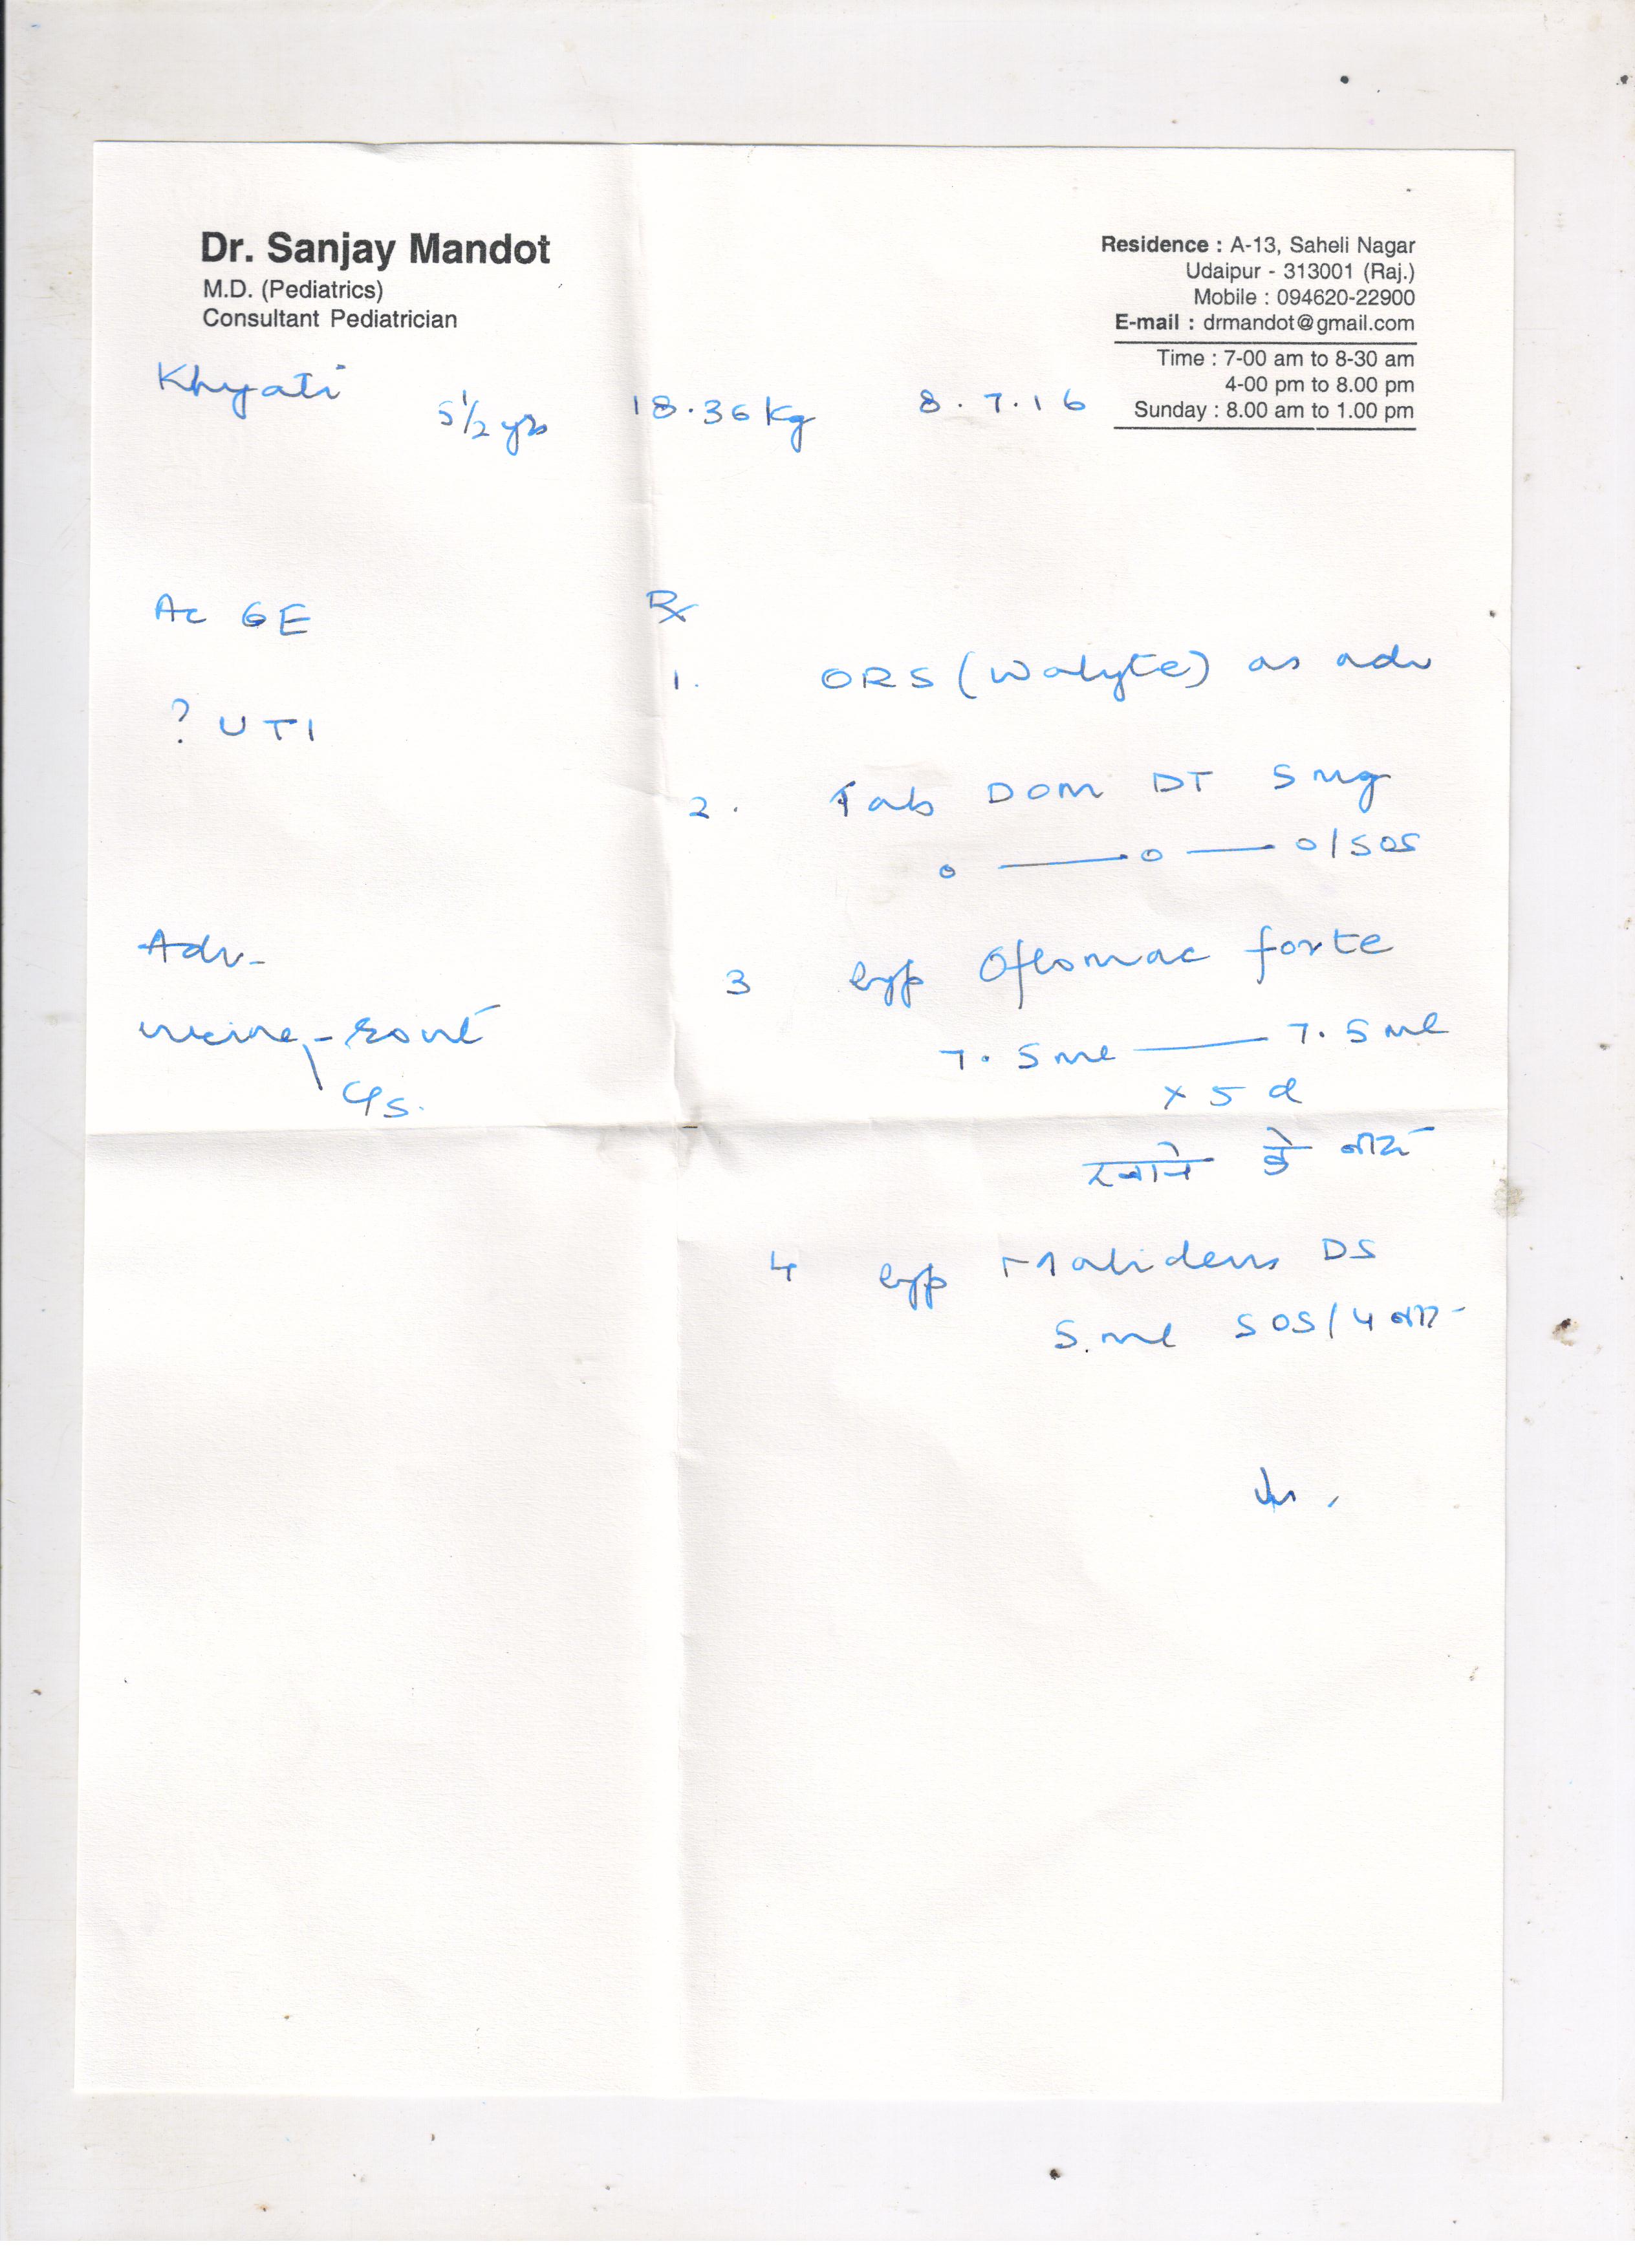 Dr. Sanjay Mandot
M.D. (Pediatrics)
Consultant Pediatrician
Residence : A-13, Saheli Nagar
Udaipur - 313001 (Raj.)
Mobile : 094620-22900
E-mail : drmandot@gmail.com
Time : 7-00 am to 8-30 am
4-00 pm to 8.00 pm
Sunday : 8.00 am to 1.00 pm
Khyati 5 1/2 yrs 18.36 kg 8.7.16
Ac GE
? UTI
Adv-
urine - rout
C/s.
Rx
1. ORS (Walyte) as adv
2. Tab DOM DT 5 mg
o — o — o / SOS
3 Syp Oflomac forte
7.5 ml — 7.5 ml
x 5 d
खाने के बाद
4 Syp DS
5 ml SOS / 4 बार